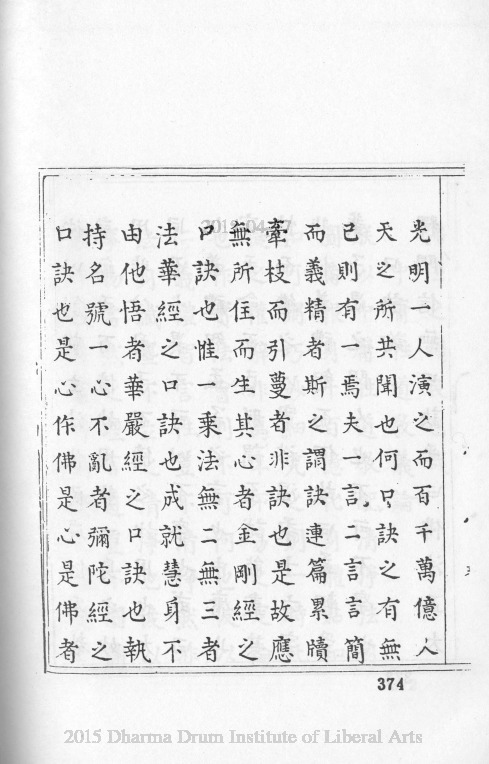 光明一人演之而百千萬億人
天之所共聞也何口訣之有無
已則有一焉夫一言二言言簡
而義精者斯之謂訣連篇累牘
牽枝而引蔓者非訣也是故應
無所住而生其心者金剛經之
口訣也惟一乘法無二無三者
法華經之口訣也成就慧身不
由他悟者華嚴經之口訣也執
持名號一心不亂者彌陀經之
口訣也是心作佛是心是佛者
374
2015 Dharma Drum Institute of Liberal Arts